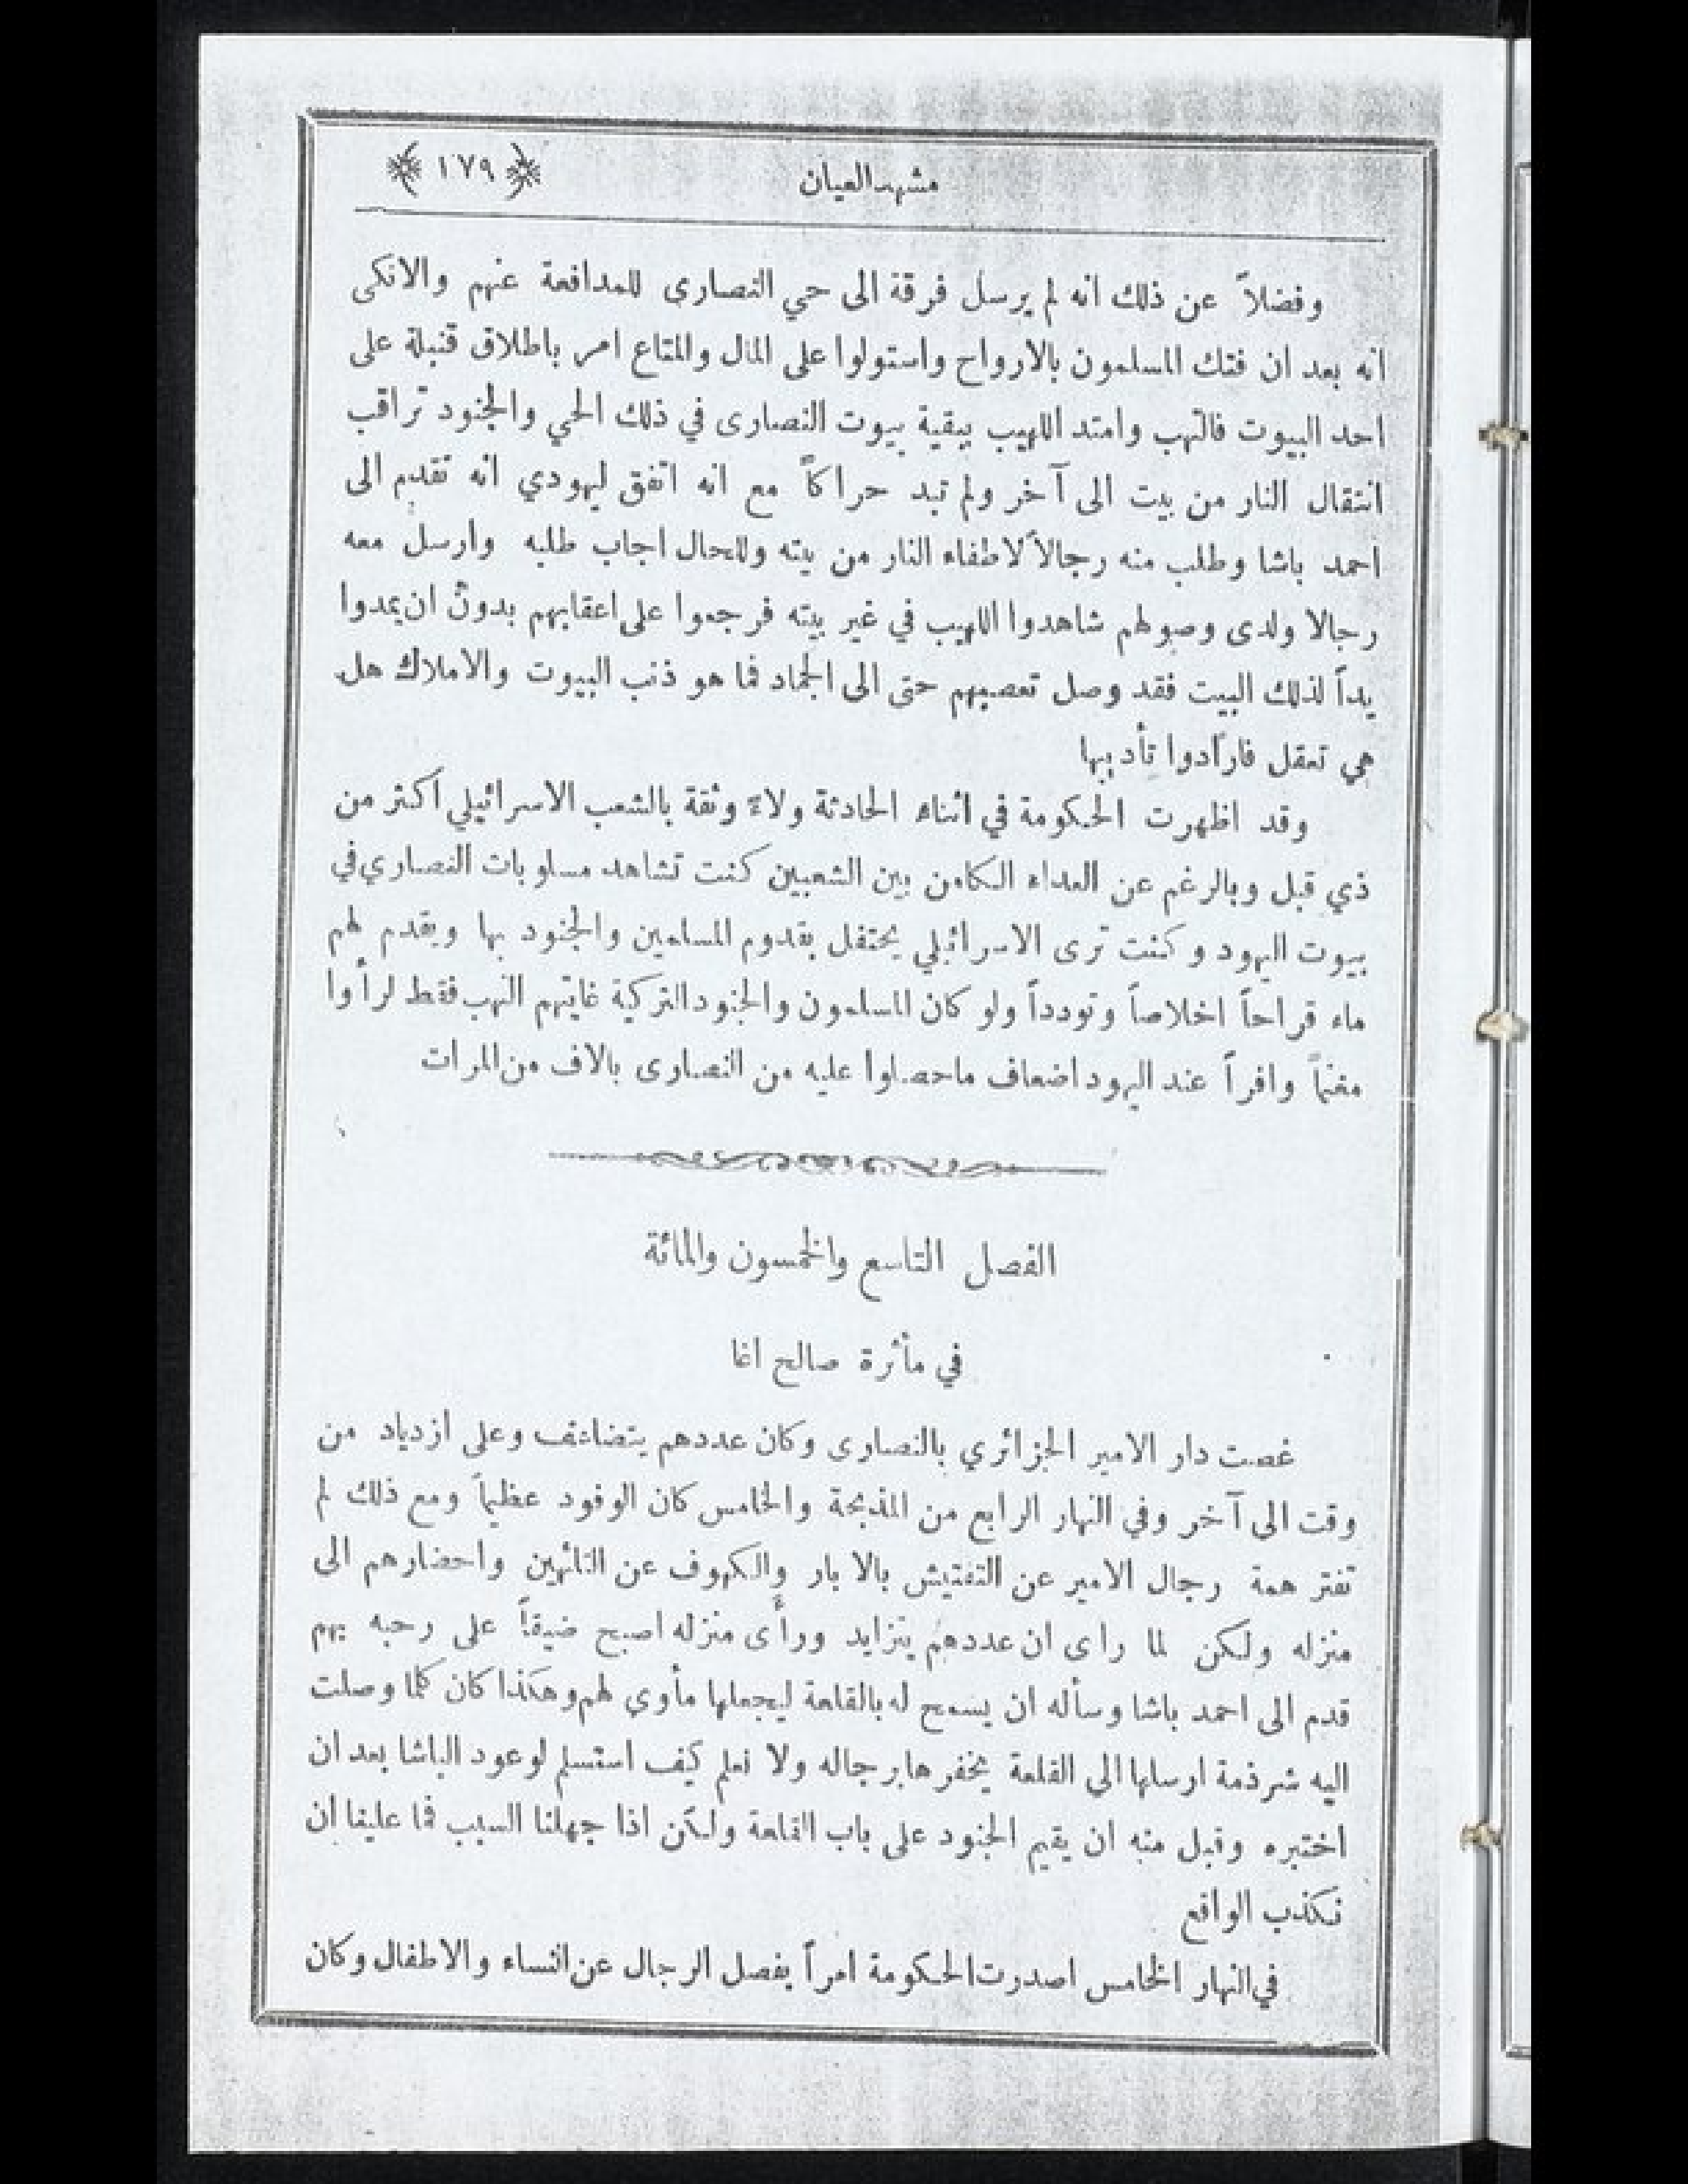 مشهد العيان
﴿ ١٧٩ ﴾
وفضلاً عن ذلك انه لم يرسل فرقة الى حي النصارى للمدافعة عنهم والانكى
انه بعد ان فتك المسلمون بالارواح واستولوا على المال والمتاع امر باطلاق قنبلة على
احد البيوت فالتهب وامتد اللهيب ببقية بيوت النصارى في ذلك الحي والجنود تراقب
انتقال النار من بيت الى آخر ولم تبد حراكاً مع انه اتفق ليهودي انه تقدم الى
احمد باشا وطلب منه رجالاً لاطفاء النار من بيته وللحال اجاب طلبه وارسل معه
رجالا ولدى وصولهم شاهدوا اللهيب في غير بيته فرجعوا على اعقابهم بدون ان يمدوا
يداً لذلك البيت فقد وصل تعصبهم حتى الى الجماد فما هو ذنب البيوت والاملاك هل
هي تعقل فارادوا تأديبها
وقد اظهرت الحكومة في اثناء الحادثة ولاءً وثقة بالشعب الاسرائيلي اكثر من
ذي قبل وبالرغم عن العداء الكامن بين الشعبين كنت تشاهد مسلوبات النصاري في
بيوت اليهود وكنت ترى الاسرائيلي يحتفل بقدوم المسلمين والجنود بها ويقدم لهم
ماء قراحاً اخلاصاً وتودداً ولو كان المسلمون والجنود التركية غايتهم النهب فقط لرأوا
مغنماً وافراً عند اليهود اضعاف ما حصلوا عليه من النصارى بالاف من المرات
الفصل التاسع والخمسون والمائة
في مأثرة صالح اغا
غصت دار الامير الجزائري بالنصارى وكان عددهم يتضاعف وعلى ازدياد من
وقت الى آخر وفي النهار الرابع من المذبحة والخامس كان الوفود عظيماً ومع ذلك لم
تفتر همة رجال الامير عن التفتيش بالابار والكهوف عن التائهين واحضارهم الى
منزله ولكن لما راى ان عددهم يتزايد ورأى منزله اصبح ضيقاً على رحبه بهم
قدم الى احمد باشا وسأله ان يسمح له بالقلعة ليجعلها مأوي لهم وهكذا كان كلما وصلت
اليه شرذمة ارسلها الى القلعة يخفرها برجاله ولا نعلم كيف استسلم لوعود الباشا بعد ان
اختبره وقبل منه ان يقيم الجنود على باب القلعة ولكن اذا جهلنا السبب فما علينا ان
نكذب الواقع
في النهار الخامس اصدرت الحكومة امراً بفصل الرجال عن النساء والاطفال وكان